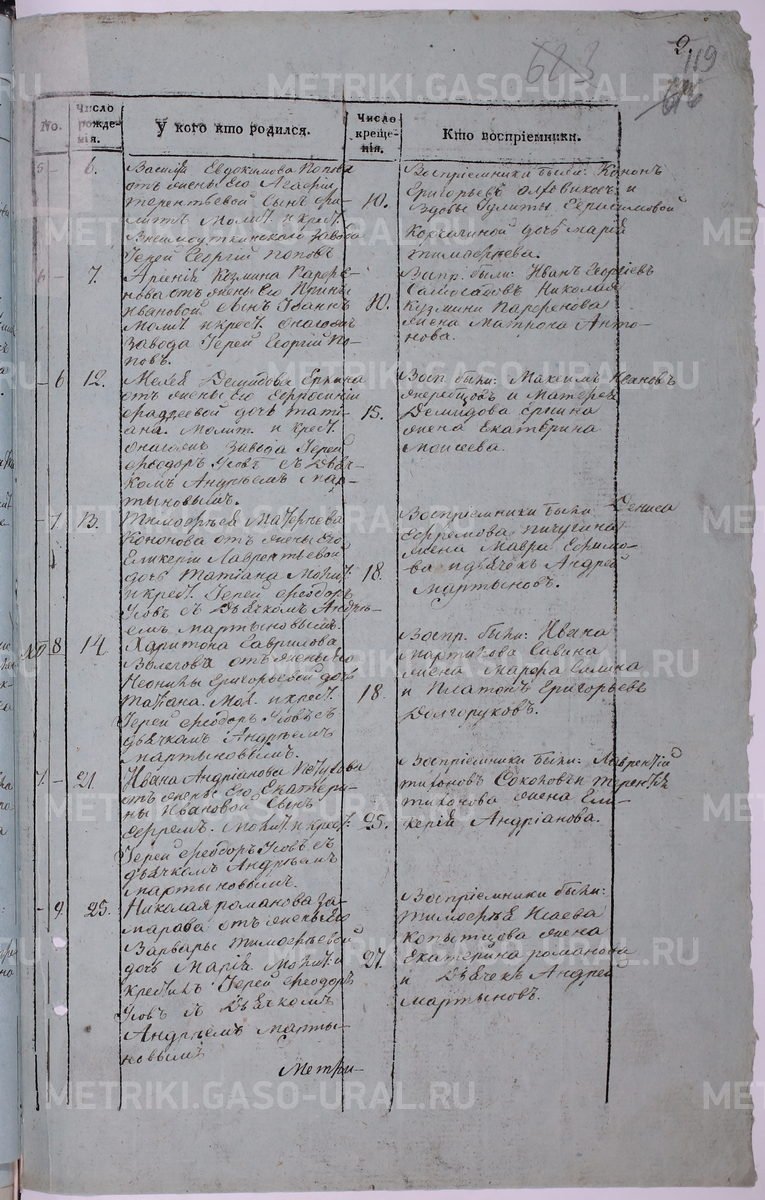 2.
623
119
616
No.
Число рожде-нія.
У кого кто родился.
Число креще-нія.
Кто воспріемники.
5 -
6.
Василія Евдокимова Попова
отъ жены его Агафіи
Терентьевой сынъ
Молит. и крест.
завода
Іерей Георгій Поповъ
10.
Воспріемники были: Кононъ
Григорьевъ и
вдовы Іулиты Герасимовой
дочь Марія
Тимофеева.
6 -
7.
Арсенія Козмина Парфе-
нова отъ жены его Ирины
Ивановой сынъ Іоаннъ
Молит. и крест. онагожъ
завода Іерей Георгій По-
повъ.
10.
Воспр. были: Иванъ Георгіевъ
Николая
Кузмина Парфенова
жена Матрона Анто-
нова.
- 6
12.
Демидова Еркина
отъ жены его Евфросиніи
Фаддеевой дочь Тати-
ана. Молит. и крест.
онагожъ завода Іерей
Феодоръ Усовъ съ дьяч-
комъ Андреемъ Мар-
тыновымъ.
15.
Восп. были: Максимъ Ивановъ
и
Демидова Еркина
жена Екатерина
Моисеева.
- 7
13.
Тимофея Матфеева
Кононова отъ жены его
Гликеріи Лаврентьевой
дочь Татіана Молит.
и крест. Іерей Феодоръ
Усовъ съ дьячкомъ Андре-
емъ Мартыновымъ.
18.
Воспріемники были Дениса
Ефремова Пичугина
жена Мавра Ефимо-
ва и дьячекъ Андрей
Мартыновъ.
№ 8
14.
Харитона Гаврилова
отъ жены его
Неонилы Григорьевой дочь
Татіана. Мол. и крест.
Іерей Феодоръ Усовъ съ
дьячкомъ Андреемъ
Мартыновымъ.
18.
Воспр. были: Ивана
Савина
жена
и Платонъ Григорьевъ
Долгоруковъ.
7. -
21.
Ивана Андріанова Петухова
отъ жены его Екатери-
ны Ивановой сынъ
Ефремъ. Молит. и крест.
Іерей Феодоръ Усовъ съ
дьячкомъ Андреемъ
Мартыновымъ.
25.
Воспріемники были: Лаврентій
Тихоновъ Соколовъ и Терентія
Тихонова жена Гли-
керія Андріанова.
- 9
25.
Николая Романова За-
марава отъ жены его
Варвары Тимофеевой
дочь Марія Молит. и
крестилъ Іерей Феодоръ
Усовъ съ дьячкомъ
Андреемъ Марты-
новымъ
27.
Воспріемники были:
Тимофея Исаева
Копытцова жена
Екатерина Романова
и дьячекъ Андрей
Мартыновъ.
Метри-
METRIKI.GASO-URAL.RU